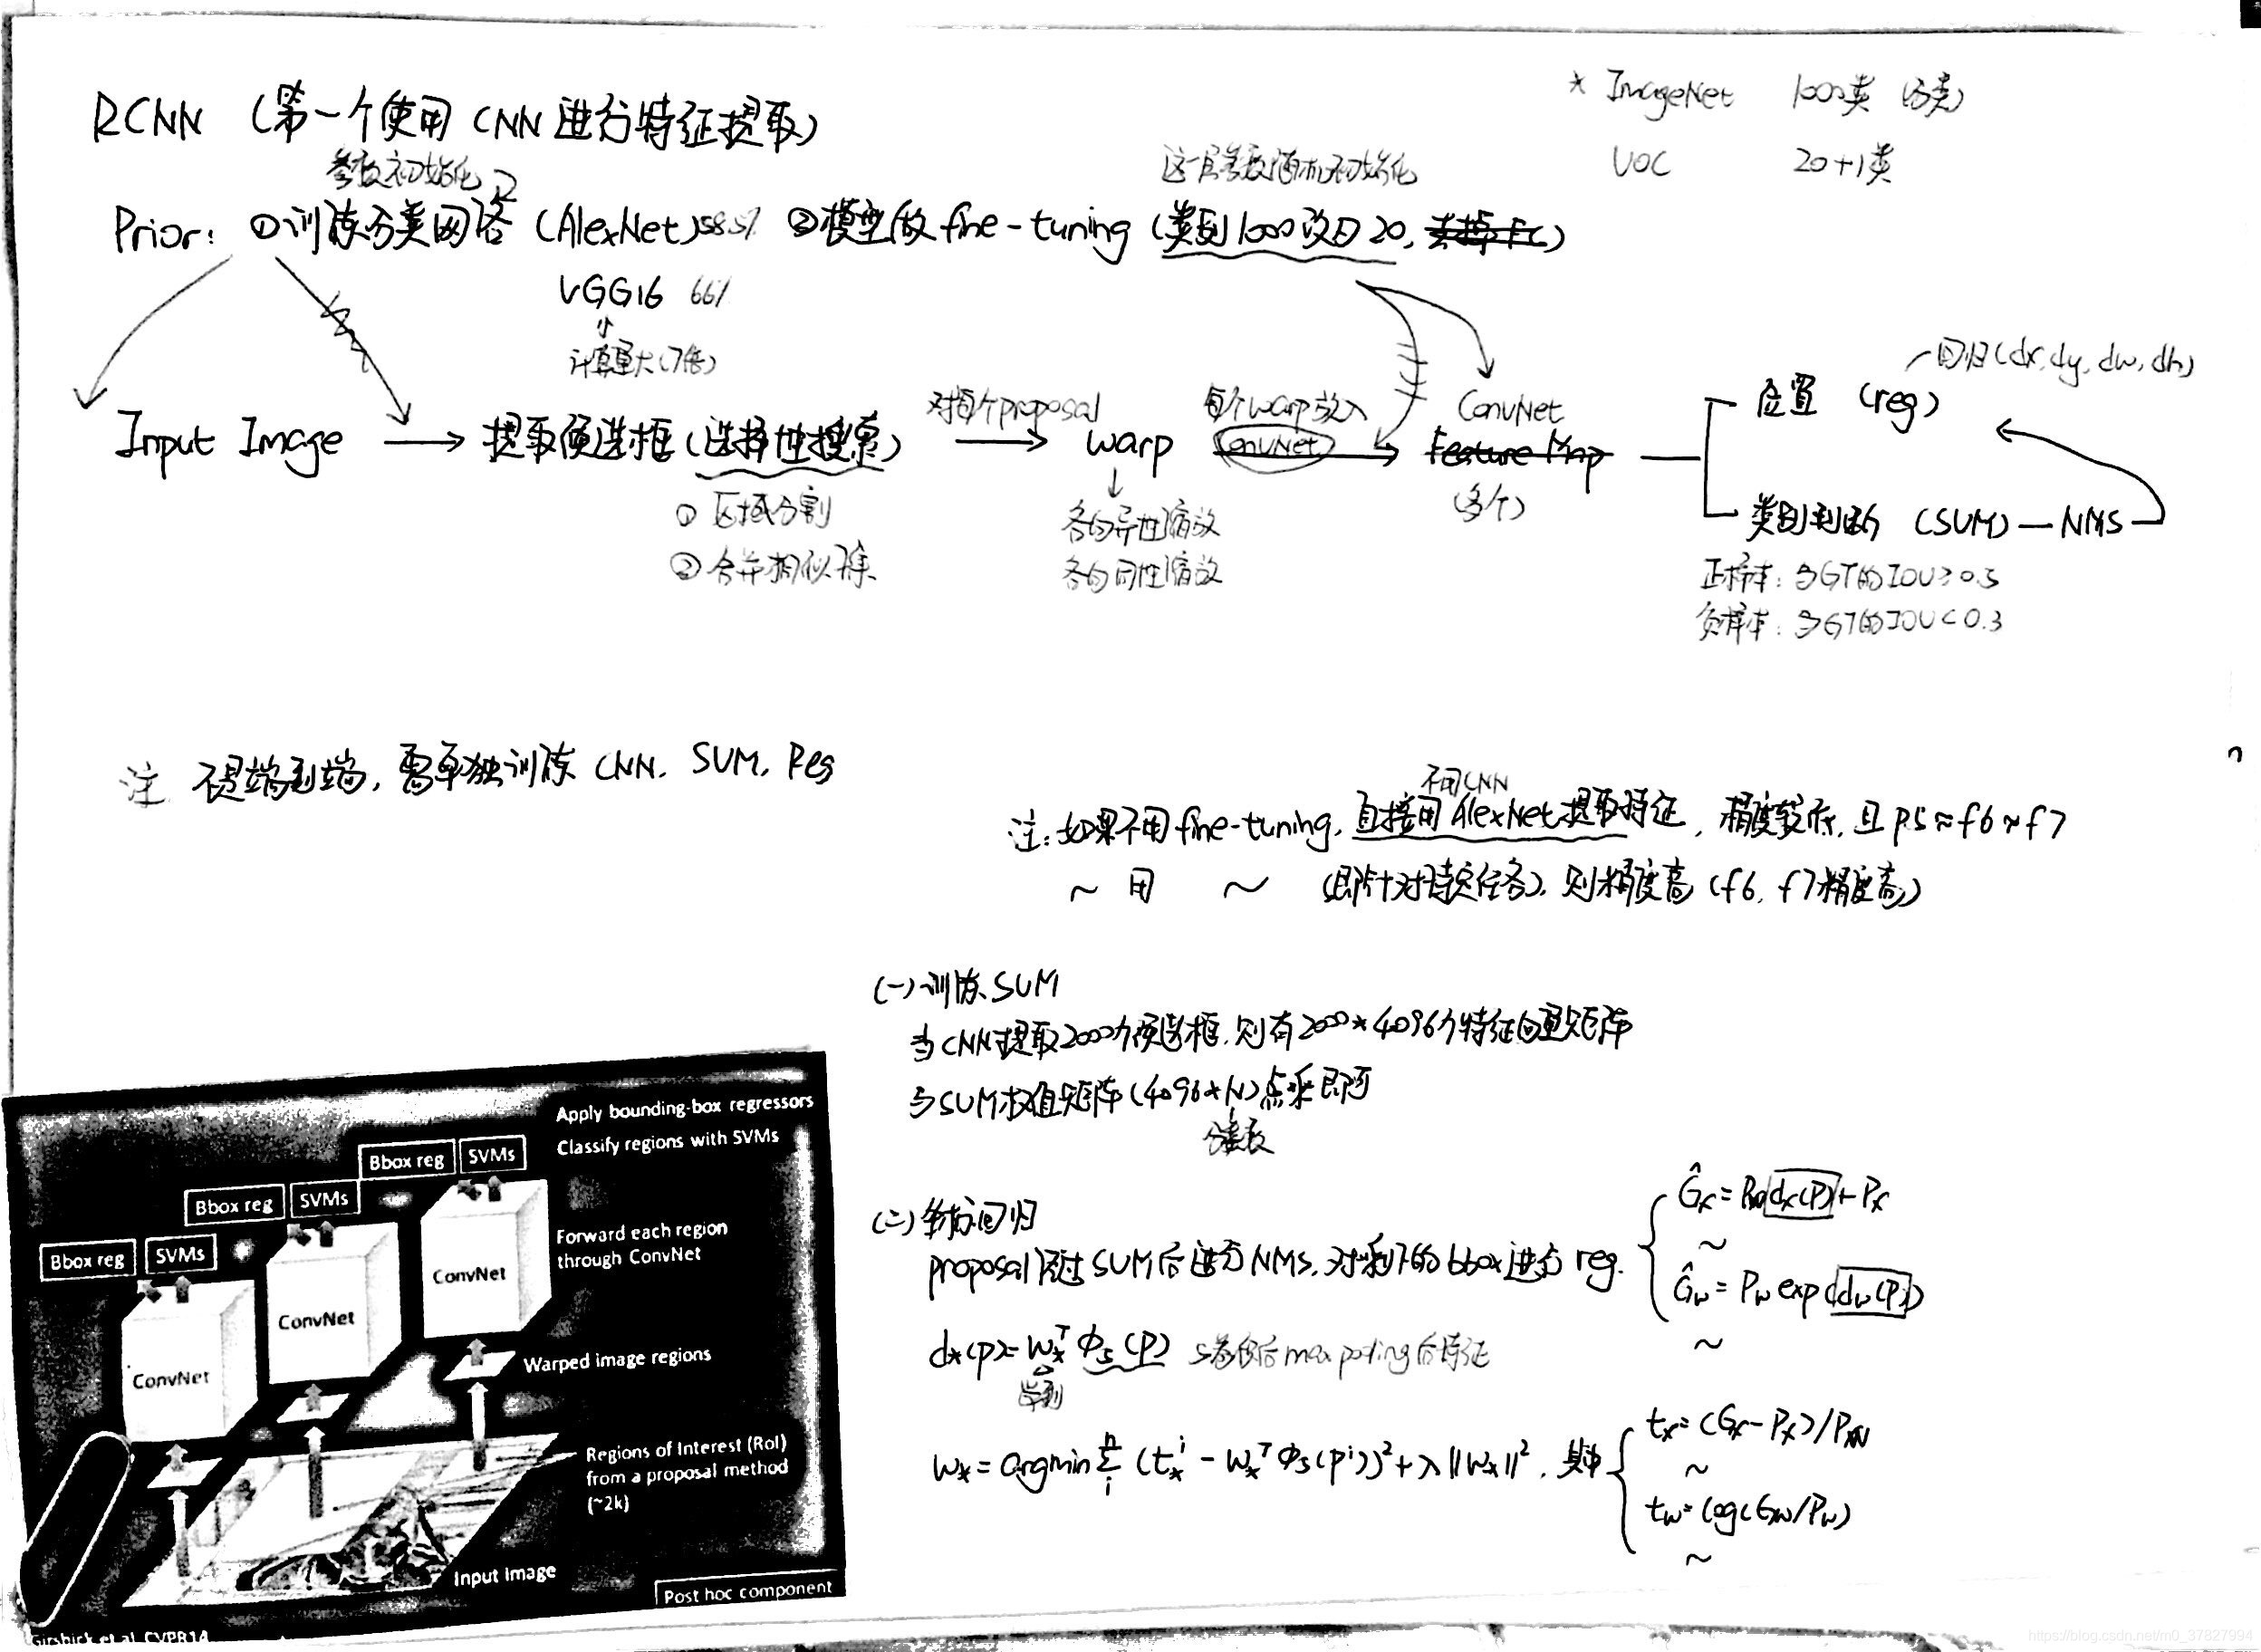 RCNN (第一个使用 CNN 进行特征提取)
* ImageNet 1000类 (分类)
VOC 20+1类
参数初始化
这一层参数随机初始化
Prior: ①训练分类网络 (AlexNet)58.5% ②模型做 fine-tuning (类别1000改为20, 去掉FC)
VGG16 66%
计算量大(7倍)
回归(dx, dy, dw, dh)
对每个proposal
每个warp放入
ConvNet
位置 (reg)
Input Image → 提取候选框(选择性搜索) → warp ConvNet → Feature Map
(多个)
① 区域分割
② 合并相似
各向异性缩放
各向同性缩放
类别判断 (SVM) — NMS
正样本: 与GT的IOU≥0.5
负样本: 与GT的IOU<0.3
注 不是端到端, 需单独训练 CNN, SVM, Reg
不同CNN
注: 如果不用 fine-tuning, 直接用 AlexNet 提取特征, 精度较, 且 p5≈f6≈f7
~ 用 ~ (即针对特定任务), 则精度高 (f6, f7精度高)
(一) 训练SVM
当CNN提取2000个候选框, 则有2000*4096个特征向量矩阵
与SVM权值矩阵(4096*N)点乘即可
分类数
(二) 回归
proposal 经过 SVM 后进行NMS, 对剩下的 bbox 进行 reg.
Ĝx = Pw dx(P) + Px
~
Ĝw = Pw exp(dw(P))
~
d*(P) = w*ᵀ Φ5(P) 5卷积后 max pooling后特征
学到
w* = argmin Σᵢⁿ (t*ⁱ - w*ᵀ Φ5(Pⁱ))² + λ||w*||², 其中
tx = (Gx - Px)/Pw
~
tw = log(Gw/Pw)
~
Apply bounding-box regressors
Classify regions with SVMs
Bbox reg SVMs
Bbox reg SVMs
Bbox reg SVMs
Forward each region
through ConvNet
ConvNet
ConvNet
ConvNet
Warped image regions
Regions of Interest (RoI)
from a proposal method
(~2k)
Input Image
Post hoc component
Girshick et al. CVPR14
https://blog.csdn.net/m0_37827994